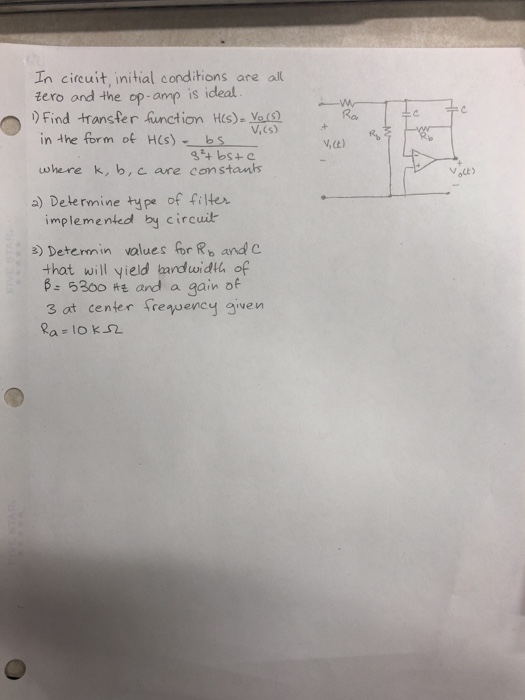 In circuit, initial conditions are all
zero and the op-amp is ideal.
1) Find transfer function H(s) = Vo(s)
Vi(s)
in the form of H(s) = bs
s²+ bs + c
where k, b, c are constants
2) Determine type of filter
implemented by circuit
3) Determin values for Rb and C
that will yield bandwidth of
β = 5300 Hz and a gain of
3 at center frequency given
Ra = 10 kΩ
Ra
C
C
Rb
Rb
+
Vi(t)
-
-
+
+
Vo(t)
-